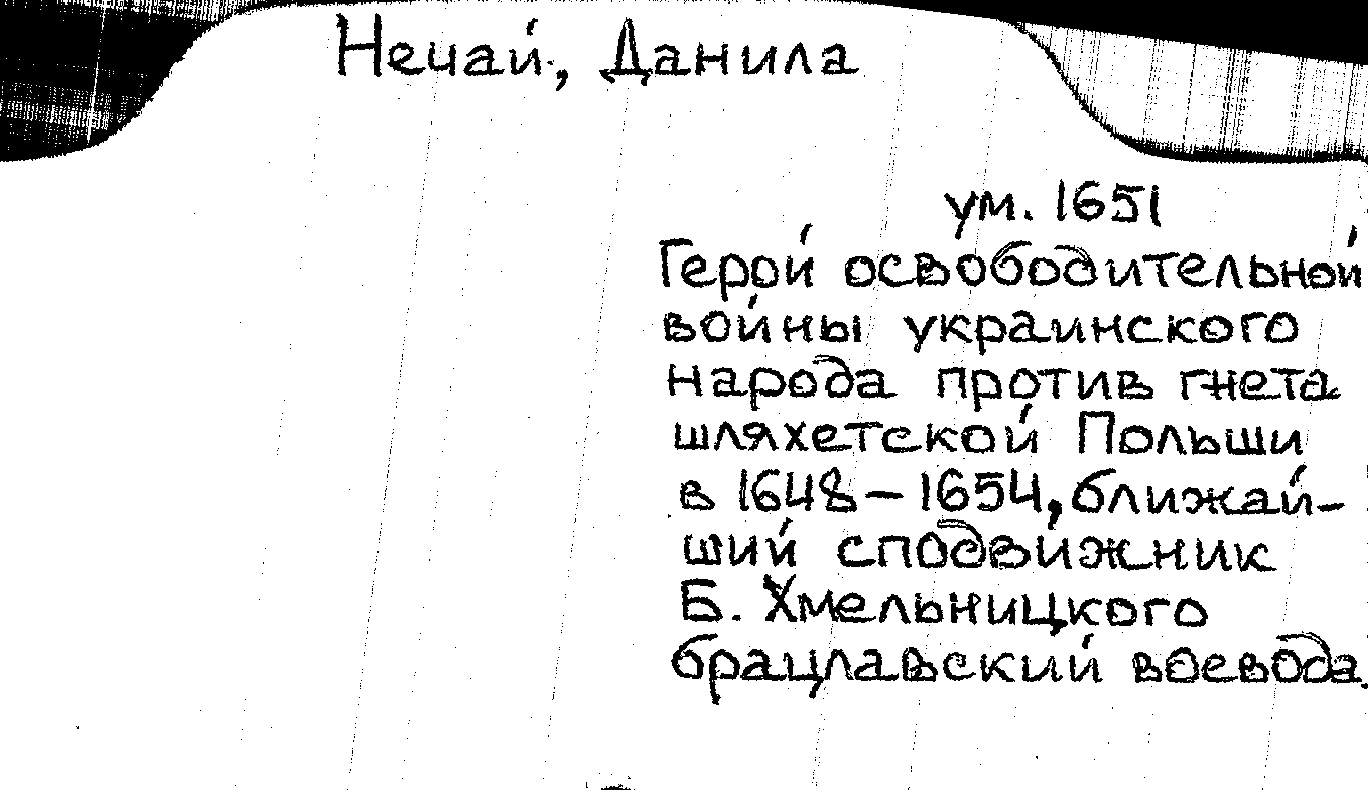 Нечай, Данила
ум. 1651
Герой освободительной
войны украинского
народа против гнета
шляхетской Польши
в 1648 – 1654, ближай-
ший сподвижник
Б. Хмельницкого
брацлавский воевода.